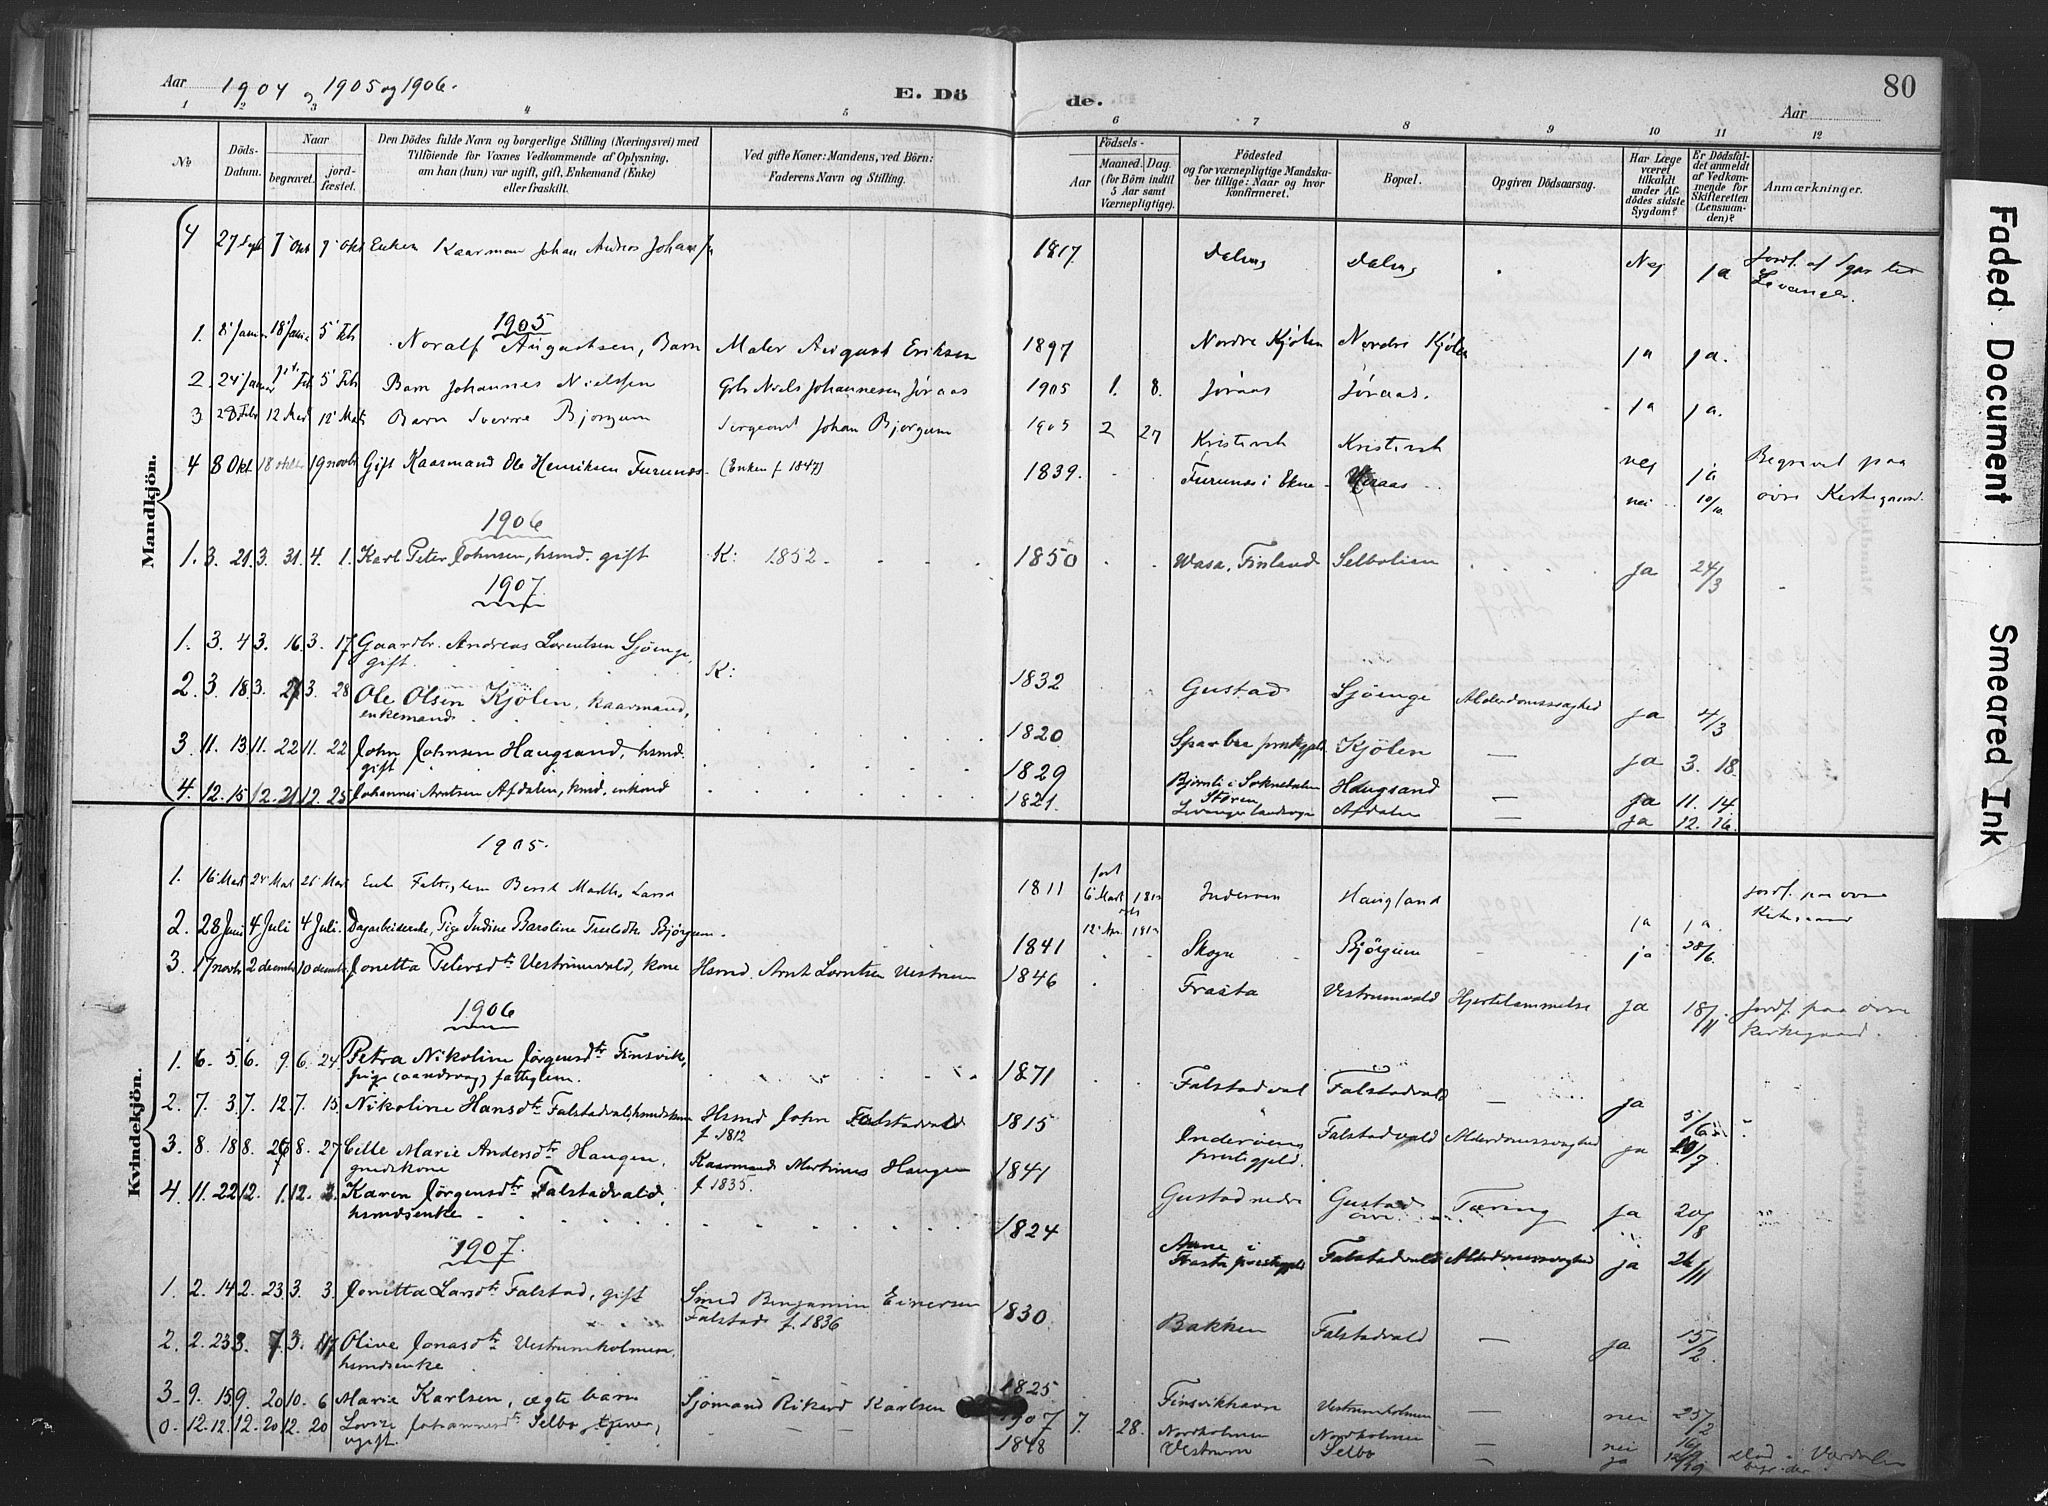 Aar 1904 og 1905 og 1906.
E. Dö
de.
Aar
80
1 2 3 4 5 6 7 8 9 10 11 12
No
Döds-Datum.
Naar
begravet.
jord-fæstet.
Den Dödes fulde Navn og borgerlige Stilling (Næringsvei) med
Tilföiende for Voxnes Vedkommende af Oplysning,
om han (hun) var ugift, gift, Enkemand (Enke)
eller fraskilt.
Ved gifte Koner: Mandens, ved Börn:
Faderens Navn og Stilling.
Födsels-
Aar
Maaned. Dag.
(for Börn indtil
5 Aar samt
Værnepligtige).
Födested
og for værnepligtige Mandska-
ber tillige: Naar og hvor
konfirmeret.
Bopæl.
Opgiven Dödsaarsag.
Har Læge
været
tilkaldt
under Af-
dödes sidste
Sygdom?
Er Dödsfal-
det anmeldt
af Vedkom-
mende for
Skifteretten
(Lensman-
den)?
Anmærkninger.
Mandkjön.
4 27 Sept 7 Okt 9 Okt Enkem Kaarman Johan Andreas 1817 Nej ja Levanger.
1905
1. 8 Januar 18 Januar 5 Feb Noralf Augustsen, Barn Maler August Eriksen 1897 Nordre Kjölen Nordre Kjölen ja ja.
2. 24 Januar 5 Feb Barn Johannes Nielssen Niels Johannesen Jøraas 1905 1. 8. Jøraas Jøraas. ja ja.
3 28 Febr 12 Marts 12 Marts Barn Sverre Bjørgum Sergeant Johan Bjørgum 1905 2 27 Kristivik Kristivik nej ja
4 8 Okt. 18 oktbr 19 novbr Gift Kaarmand Ole Henriksen Furunes. (Enken f. 1847) 1839. Furunes i Ekne nei 10/10. Begravet paa øvre Kirkegaard.
1906
1. 3. 21. 3. 31. 4. 1. Karl Peter Johnsen, hsmd. gift K: 1852. 1850 Wasa, Finland Selbolien ja 24/3
1907
1. 3. 4. 3. 16. 3. 17. Gaardbr. Andreas Lorentsen Sjöenge, gift. K: 1832 Gustad Sjöenge Alderdomssvaghed ja 4/3
2. 3. 18. 3. 27. 3. 28. Ole Olsen Kjölen, kaarmand, enkemand. 1820 Sparbu prestgjeld. Kjölen — ja 3. 18.
3. 11. 13. 11. 22. 11. 22. John Johnsen Haugsand, hsmd. gift 1829 Bjørnli i Soknedalen Støren Haugsand — ja 11. 14.
4. 12. 15. 12. 21. 12. 25. Johannes Arntsen Afdalen, hsmd, enkemd 1821. Levanger landsogn Afdalen — ja 12. 16.
Kvindekjön.
1905.
1. 16 Marts 24 Mar 26 Mar Enke Berit 1811 Inderøen Haugland ja ja Jordf. paa øvre Kirkegaard
2. 28 Juni 4 Juli 4 Juli. Dagarbeiderske, Pige Indine Baroline Bjørgum. 1841 Skogn Bjørgum ja 28/6.
3. 17 novbr 2 decembr 10 decembr Jonetta Petersdtr Vestrumvald, kone Hsmd. Arnt Lorntsen Vestrum 1846 Frosta Vestrumvald Hjertelammelse ja 18/11 Jordf. paa øvre kirkegaard.
1906
1. 6. 5. 6. 9. 6. 24. Petra Nikoline Jørgensdtr Finsvik, pige (aandssvag) fattiglem. 1871 Falstadval Falstadvald — ja 5/6
2. 7. 3. 7. 12. 7. 15. Nikoline Hansdtr Falstadvald, hsmdskone Hsmd John Falstadvald f. 1812 1815 Inderøens prestegjeld. Falstadvald Alderdomssvaghed ja 10/7
3. 8. 18. 8. 26. 8. 27. Cille Marie Andersdtr Haugen, gmdskone Kaarmand Martinus Haugen f. 1835. 1841 Gustad nedre Gustad øvre Tæring ja 20/8
4. 11. 22. 12. 1. 12. 2. Karen Jørgensdtr Falstadvald, hsmdsenke 1824 Aasne i Frosta prestegjeld Falstadvald Alderdomssvaghed ja 24/11
1907.
1. 2. 14. 2. 23. 3. 3. Jonetta Larsdtr Falstad, gift Smed Benjamin Einersen Falstad f. 1836 1830 Bakken Falstadvald — ja 15/2
2. 2. 23. 3. 7. 3. 17. Olive Jonasdtr Vestrumholmen, hsmdsenke. 1825 Finsvikhavn Vestrumholmen — nei 25/2
3. 9. 15. 9. 20. 10. 6. Marie Karlsen, ægte barn Sjömand Rikard Karlsen 1907 7. 28. Nordholmen Nordholmen — nei 16/9
0. 12. 12. 12. 20. 12. 20. Lovise Johannesdtr Selbo, tjener, ugift. 1848 Vestrum Selbo — ja Død i Værdalen
Faded Document
Smeared Ink